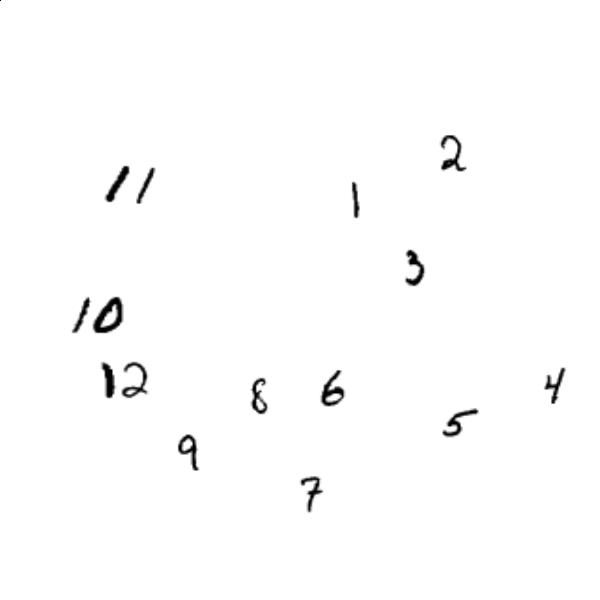 2
11
1
3
10
12
8
6
4
5
9
7